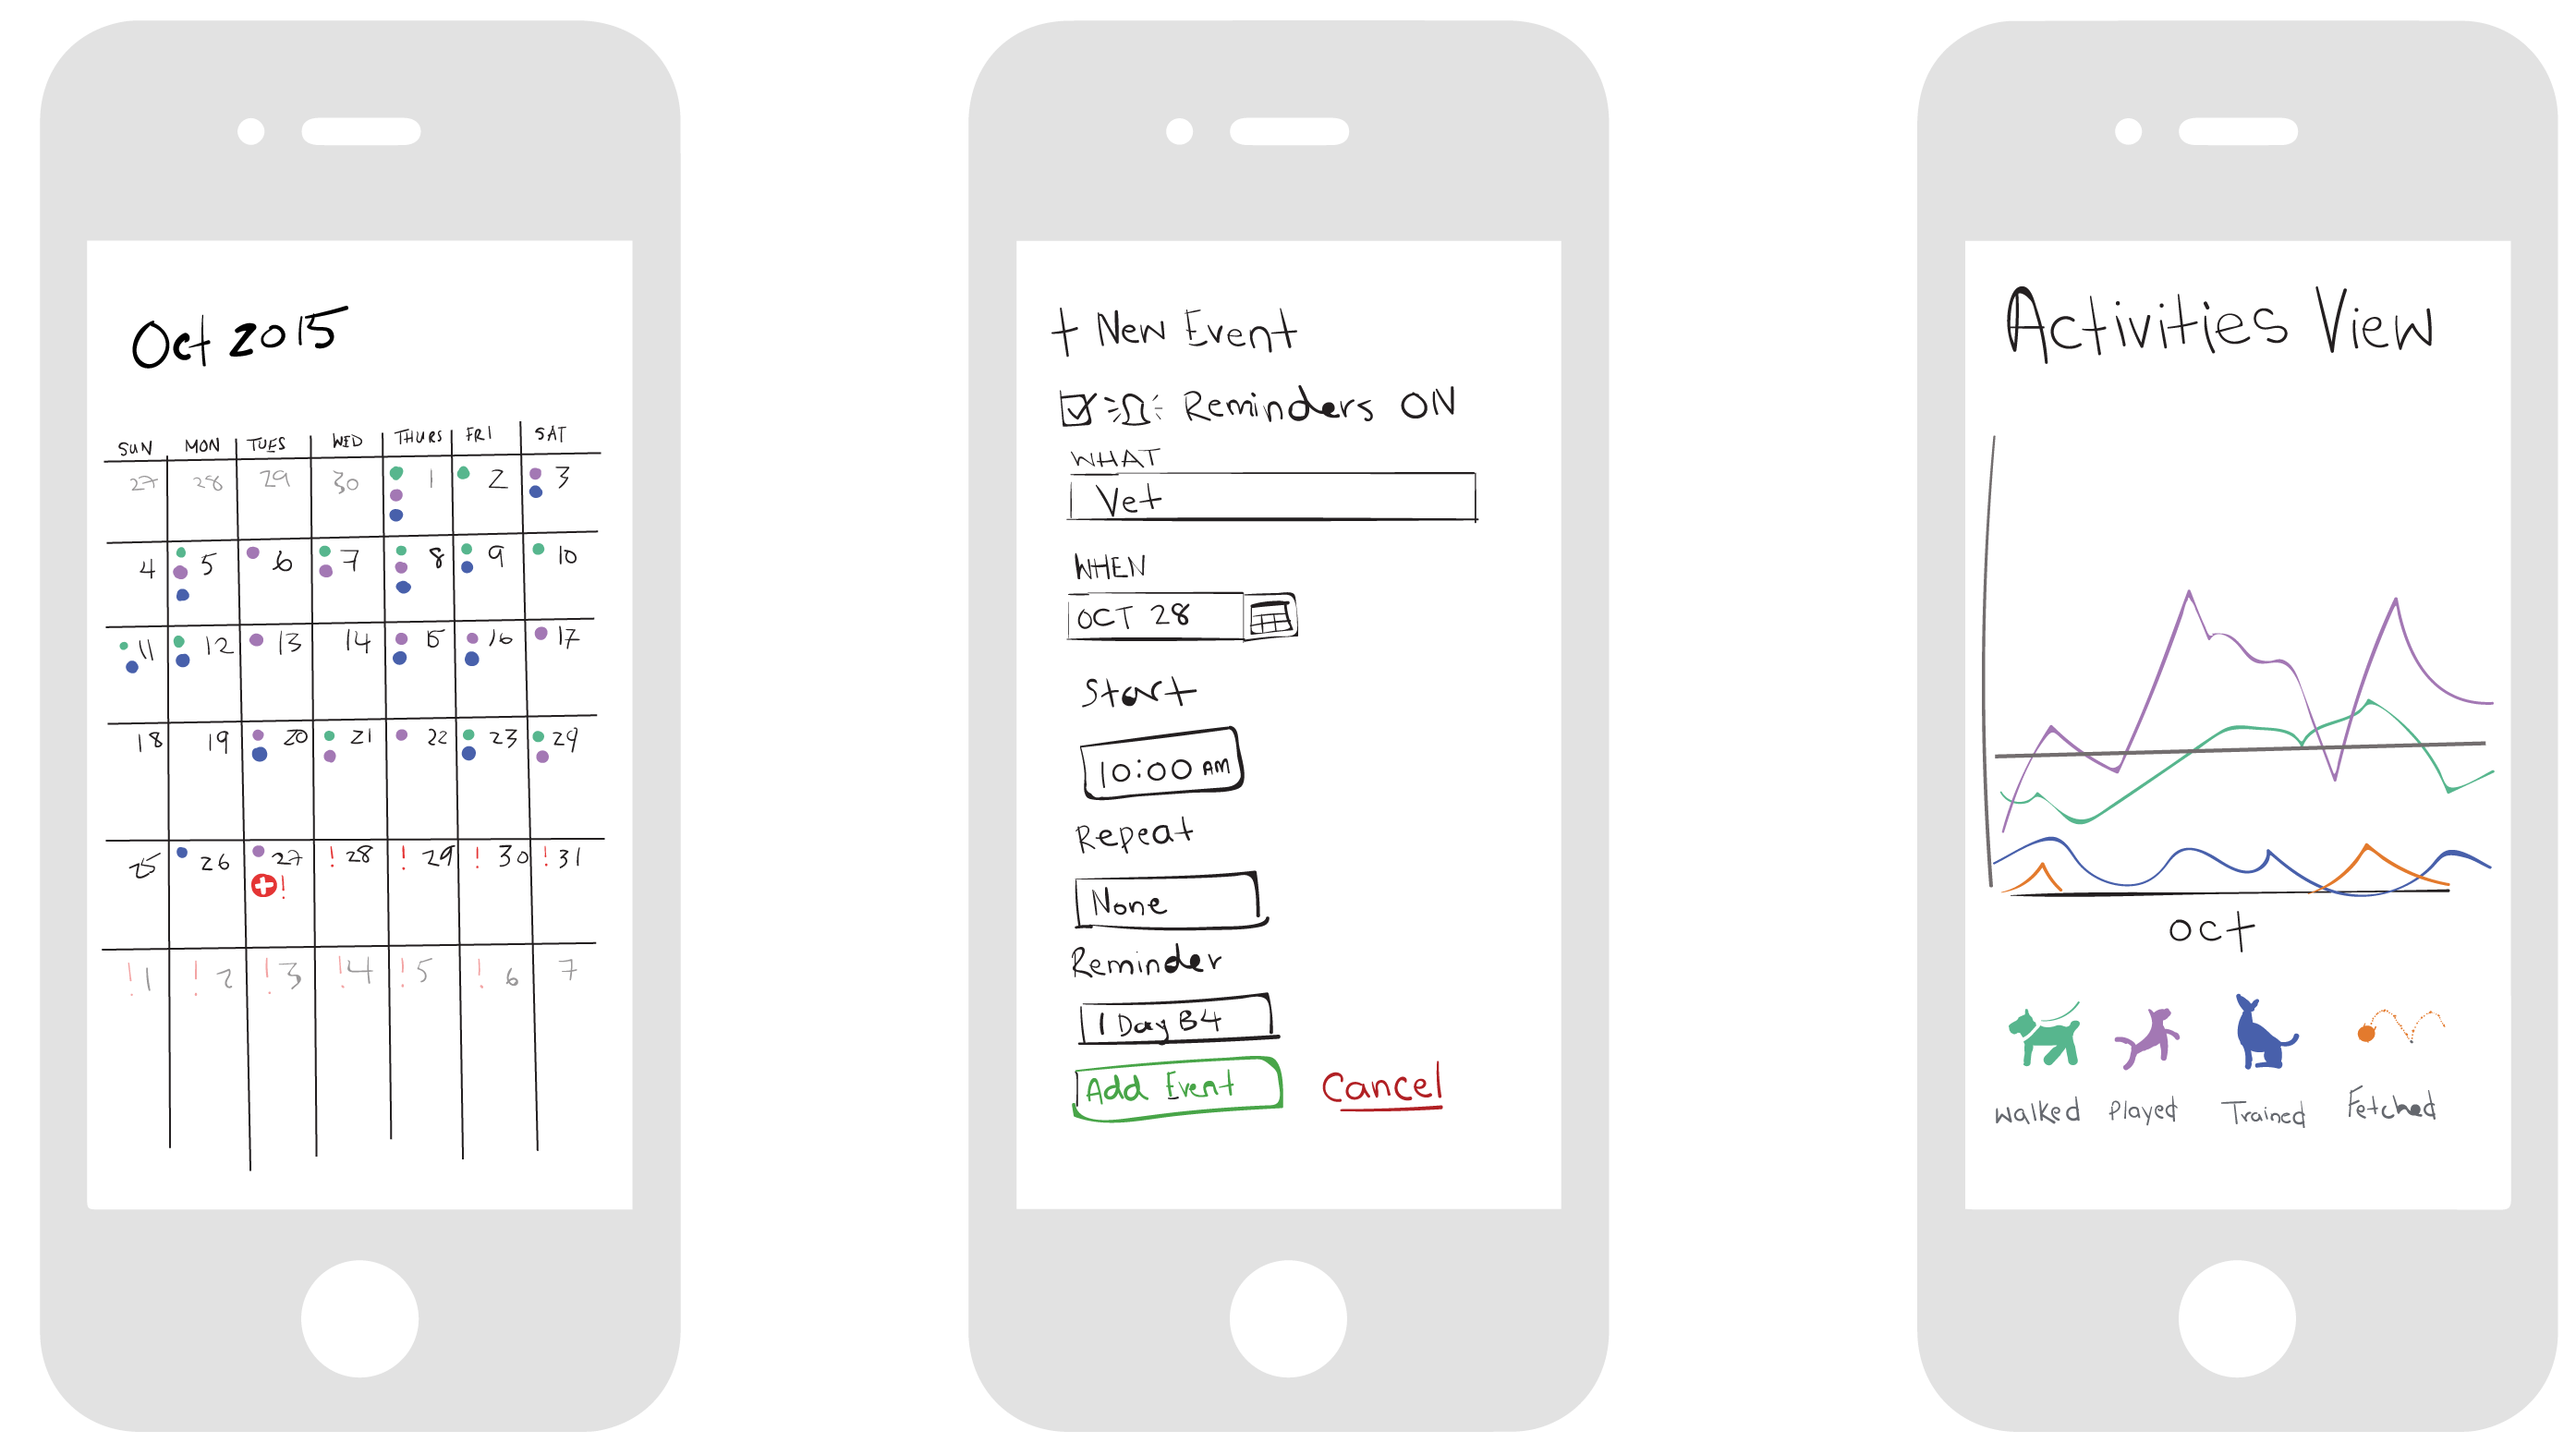 Oct 2015
SUN MON TUES WED THURS FRI SAT
27 28 29 30 1 2 3
4 5 6 7 8 9 10
11 12 13 14 15 16 17
18 19 20 21 22 23 29
25 26 27 ! 28 ! 29 ! 30 ! 31
!
! 1 ! 2 ! 3 ! 4 ! 5 ! 6 7
+ New Event
Reminders ON
WHAT
Vet
WHEN
OCT 28
Start
10:00 AM
Repeat
None
Reminder
1 Day B4
Add Event Cancel
Activities View
Oct
Walked Played Trained Fetched